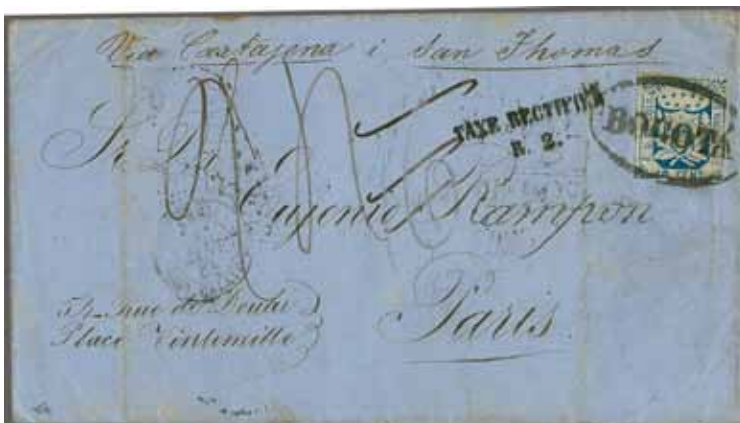 Via Cartajena i San Thomas
TAXE RECTIFIÉE
R. 2.
BOGOTA
Sr. Dn.
Eujenio Rampon
rue de Douai
Place Vintemille
Paris